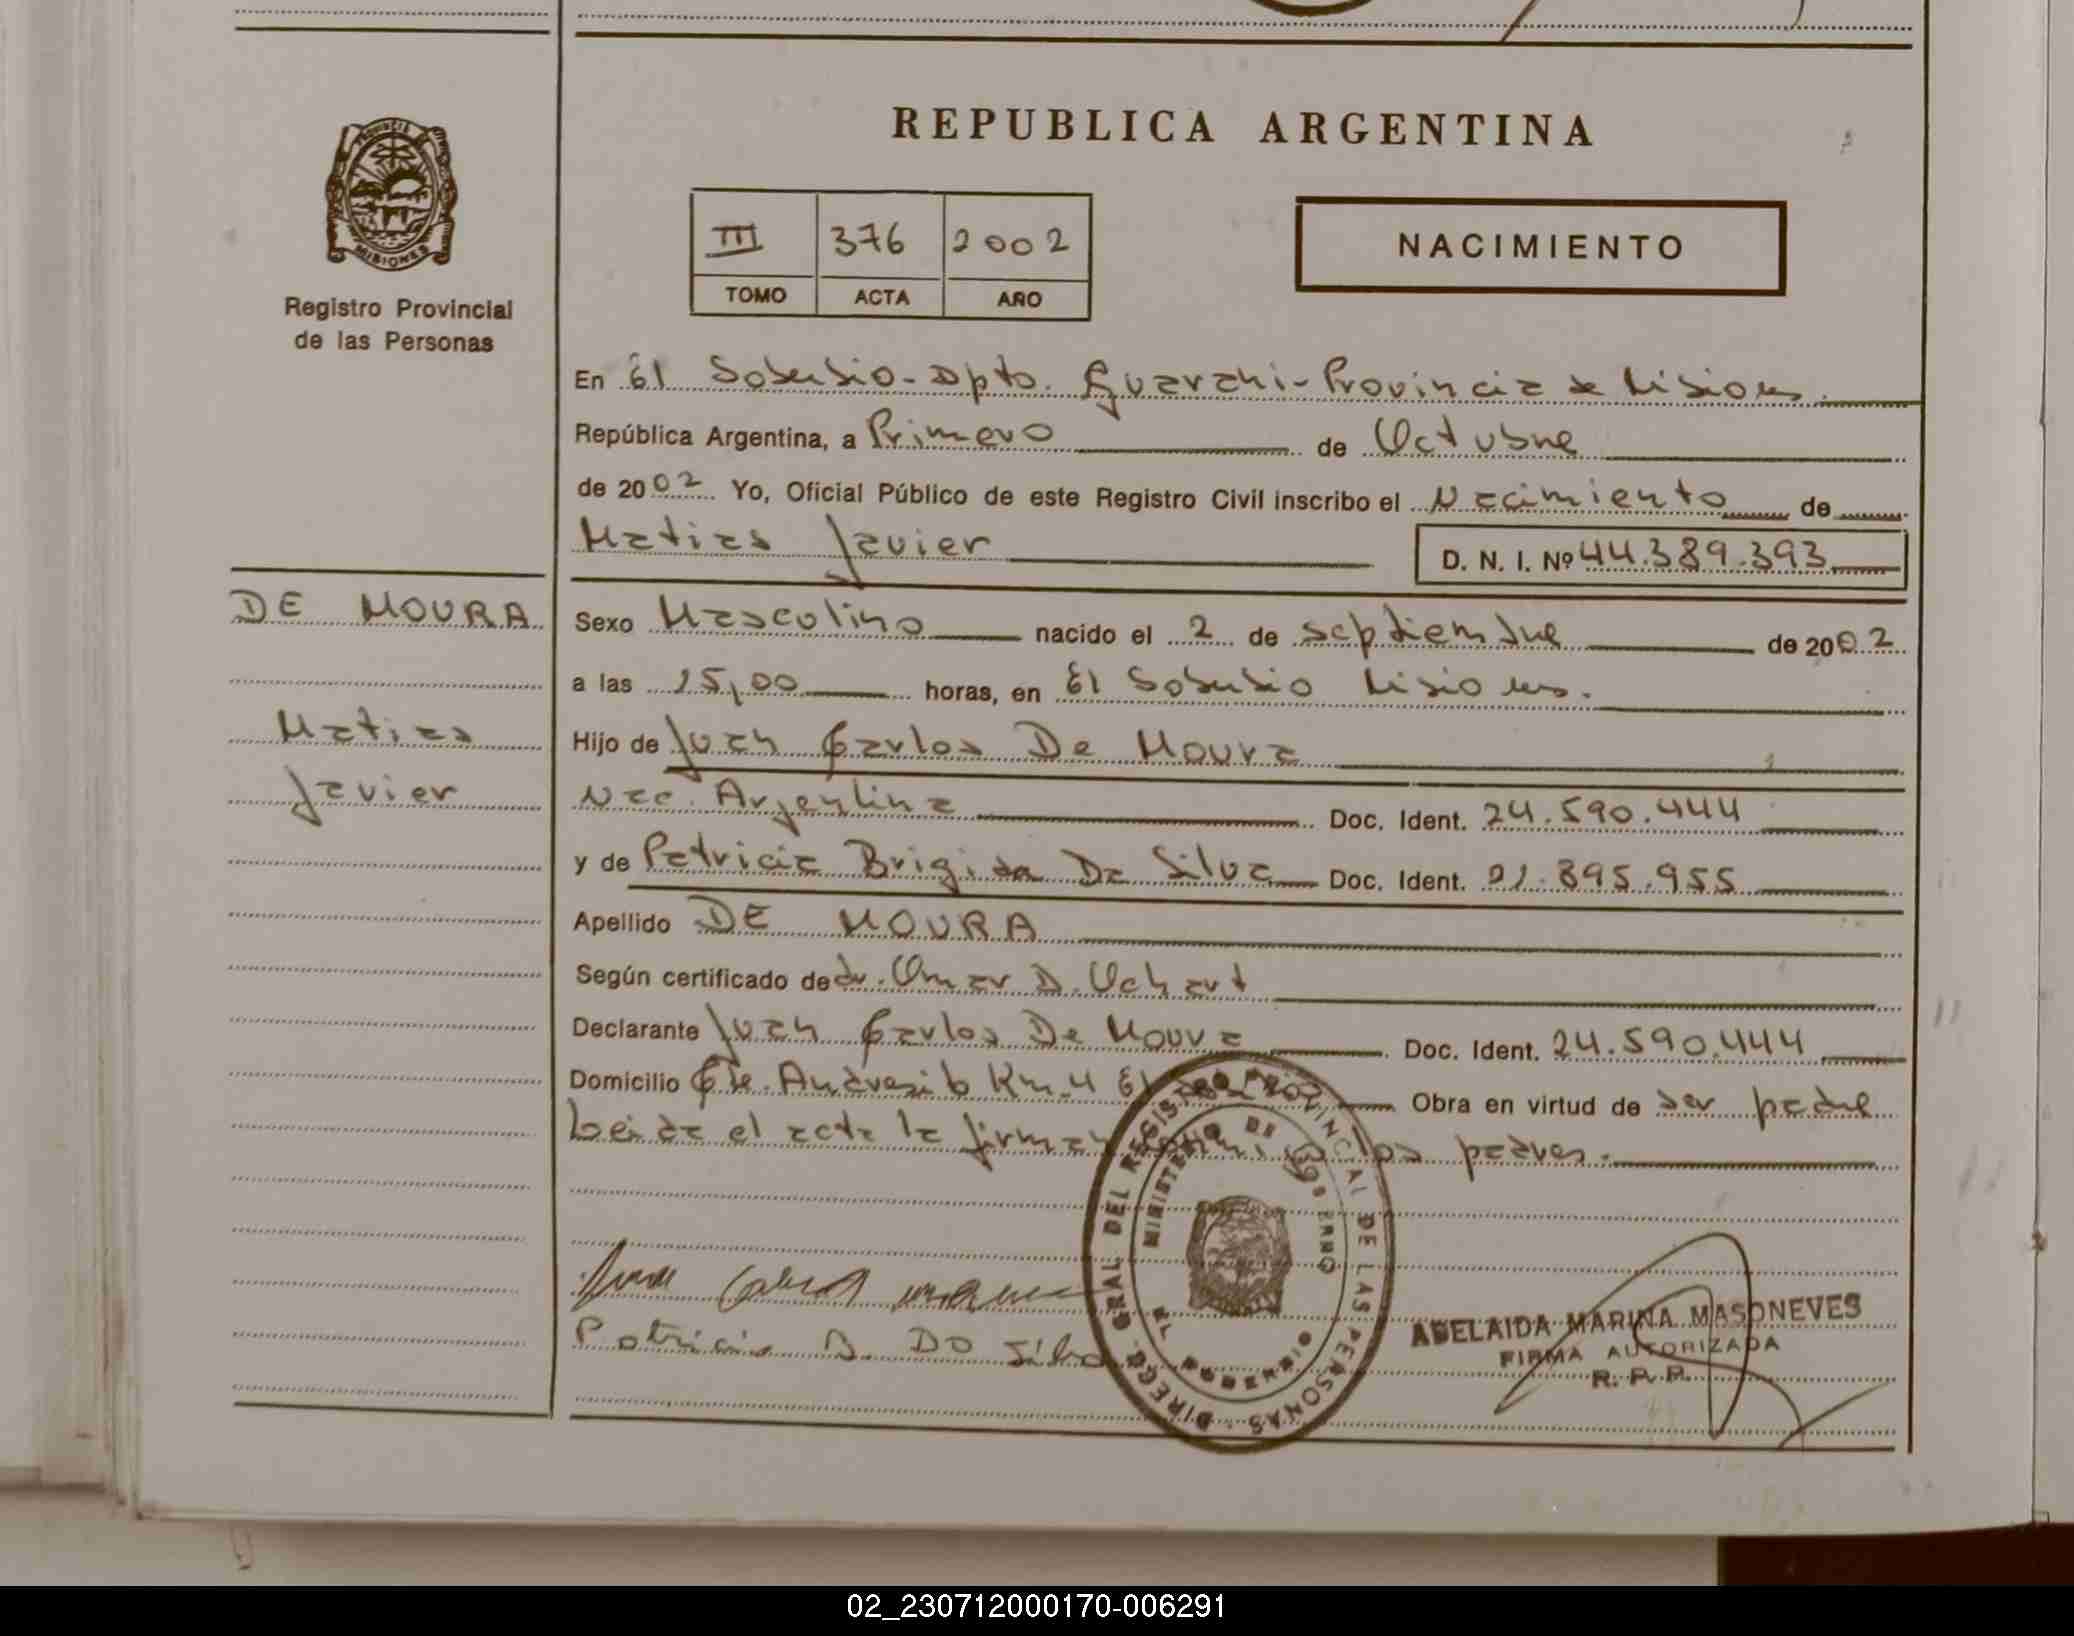 REPUBLICA ARGENTINA
PROVINCIA
MISIONES
Registro Provincial
de las Personas
III 376 2002
TOMO ACTA AÑO
NACIMIENTO
En El Soberbio - Dpto. Guarani - Provincia de Misiones.
República Argentina, a Primero de Octubre
de 2002 Yo, Oficial Público de este Registro Civil inscribo el Nacimiento de
Matias Javier D. N. I. Nº 44.389.393
DE MOURA
Matias
Javier
Sexo Masculino nacido el 2 de septiembre de 2002
a las 15,00 horas, en El Soberbio Misiones.
Hijo de Juan Carlos De Moura
Nac. Argentina Doc. Ident. 24.590.444
y de Patricia Brigida Da Silva Doc. Ident. 91.895.955
Apellido DE MOURA
Según certificado de dr. Omar D. Uchart
Declarante Juan Carlos De Moura Doc. Ident. 24.590.444
Domicilio Cte. Andresito Km. 4 El Obra en virtud de ser padre
Leida el acta la firman los padres.
DIREC. GRAL DEL REGISTRO PROVINCIAL DE LAS PERSONAS
MINISTERIO DE GOBIERNO
EL SOBERBIO
Patricia B. Da Silva
ADELAIDA MARINA MASONEVES
FIRMA AUTORIZADA
R. P. P.
02_230712000170-006291